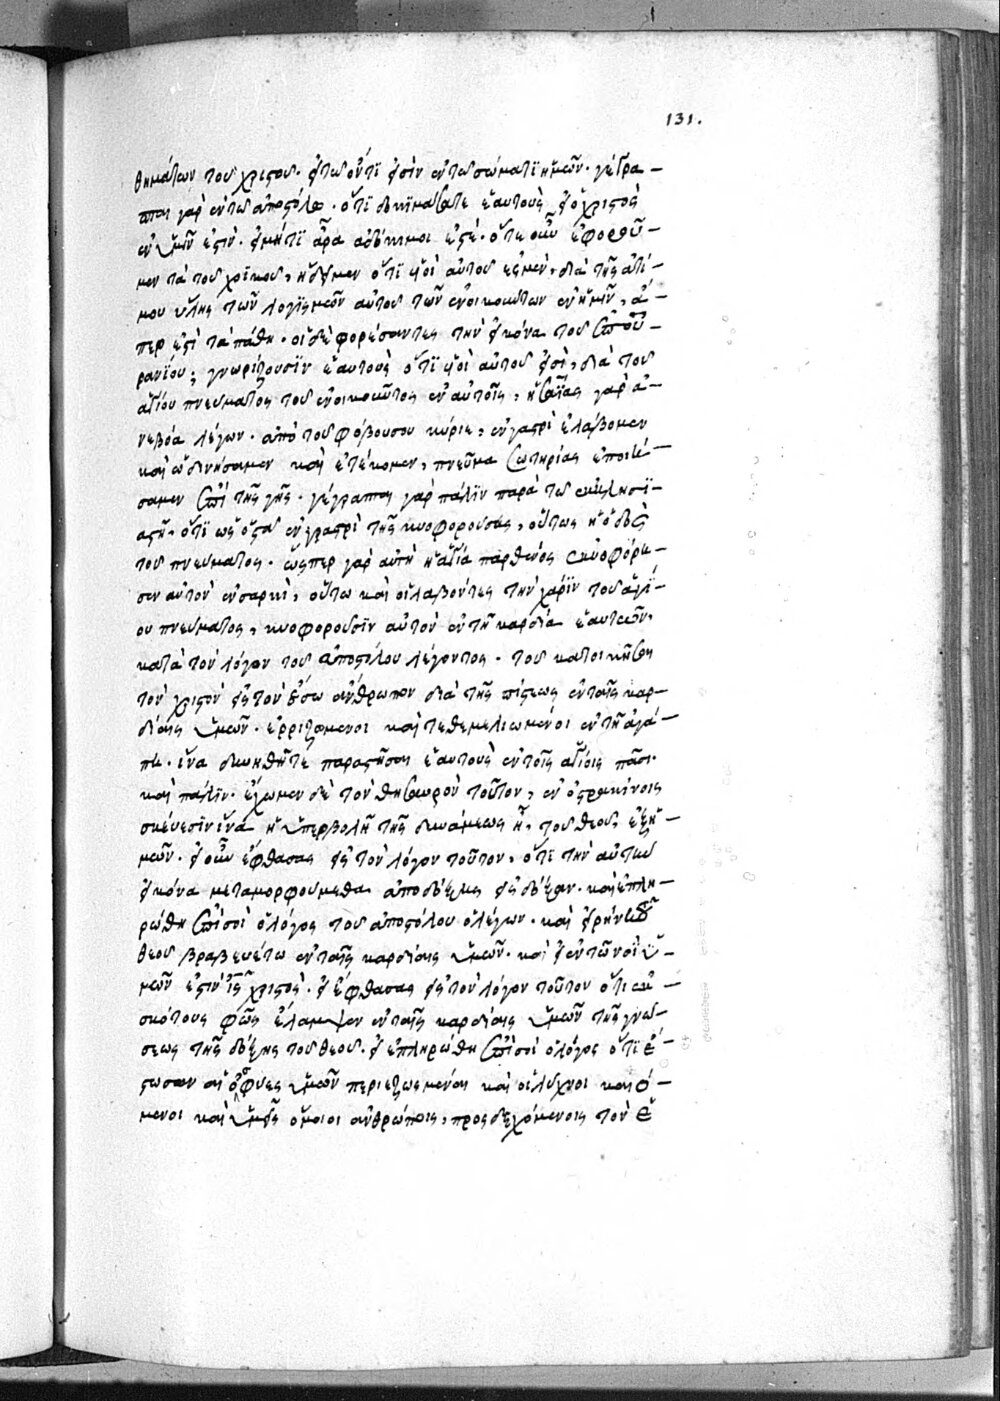 131.
θημάτων τοῦ χριστοῦ. εἰ τῷ ὄντι εἰσὶν ἐν τῷ σώματι ἡμῶν. γέγρα-
πται γὰρ ἐν τῷ ἀποστόλῳ. ὅτι δοκιμάσατε ἑαυτοὺς εἰ ὁ χριστὸς
ἐν ὑμῖν ἐστίν. εἰ μήτι ἄρα ἀδόκιμοι ἐστέ. ὅτε οὖν ἐφοροῦ-
μεν τὰ τοῦ χοϊκοῦ, ᾔδειμεν ὅτι υἱοὶ αὐτοῦ ἐσμὲν, διὰ τῆς ἀτί-
μου ὕλης τῶν λογισμῶν αὐτοῦ τῶν ἐνοικούντων ἐν ἡμῖν, ἅ-
περ ἐστὶ τὰ πάθη. οἱ δὲ φορέσαντες τὴν εἰκόνα τοῦ ἐπου-
ρανίου, γνωρίζουσιν ἑαυτοὺς ὅτι υἱοὶ αὐτοῦ εἰσὶ, διὰ τοῦ
ἁγίου πνεύματος τοῦ ἐνοικοῦντος ἐν αὐτοῖς, ἡσαΐας γὰρ ἀ-
νεβόα λέγων. ἀπὸ τοῦ φόβου σου κύριε, ἐν γαστρὶ ἐλάβομεν
καὶ ὠδινήσαμεν καὶ ἐτέκομεν, πνεῦμα σωτηρίας ἐποιή-
σαμεν ἐπὶ τῆς γῆς. γέγραπται γὰρ πάλιν παρὰ τῷ ἐκκλησι-
αστῇ. ὅτι ὡς ὀστᾶ ἐν γαστρὶ τῆς κυοφορούσης, οὕτως ἡ ὁδὸς
τοῦ πνεύματος. ὥσπερ γὰρ αὐτὴ ἡ ἁγία παρθένος ἐκυοφόρη-
σεν αὐτὸν ἐν σαρκὶ, οὕτω καὶ οἱ λαβόντες τὴν χάριν τοῦ ἁγί-
ου πνεύματος, κυοφοροῦσιν αὐτὸν ἐν τῇ καρδίᾳ ἑαυτῶν,
κατὰ τὸν λόγον τοῦ ἀποστόλου λέγοντος. τοῦ κατοικῆσαι
τὸν χριστὸν εἰς τὸν ἔσω ἄνθρωπον διὰ τῆς πίστεως ἐν ταῖς καρ-
δίαις ὑμῶν. ἐρριζωμένοι καὶ τεθεμελιωμένοι ἐν τῇ ἀγά-
πῃ. ἵνα δυνηθῆτε παραστῆσαι ἑαυτοὺς ἐν τοῖς ἁγίοις πᾶσι.
καὶ πάλιν. ἔχωμεν δὲ τὸν θησαυρὸν τοῦτον, ἐν ὀστρακίνοις
σκεύεσιν ἵνα ἡ ὑπερβολὴ τῆς δυνάμεως ᾖ, τοῦ θεοῦ, ἐξ ἡ-
μῶν. εἰ οὖν ἔφθασας εἰς τὸν λόγον τοῦτον, ὅτι τὴν αὐτὴν
εἰκόνα μεταμορφούμεθα ἀπὸ δόξης εἰς δόξαν. καὶ ἐπλη-
ρώθη ἐπὶ σοὶ ὁ λόγος τοῦ ἀποστόλου ὁ λέγων. καὶ εἰρήνη τοῦ
θεοῦ βραβευέτω ἐν ταῖς καρδίαις ὑμῶν. καὶ εἰ ἐν τῷ νοῒ ὑ-
μῶν ἐστὶν ἰς χριστὸς. εἰ ἔφθασας εἰς τὸν λόγον τοῦτον ὅτι ἐκ
σκότους φῶς ἔλαμψεν ἐν ταῖς καρδίαις ὑμῶν τῆς γνώ-
σεως τῆς δόξης τοῦ θεοῦ. εἰ ἐπληρώθη ἐπὶ σοὶ ὁ λόγος ὅτι ἔ-
στωσαν αἱ ὀσφύες ὑμῶν περιεζωσμέναι καὶ οἱ λύχνοι καιό-
μενοι καὶ ὑμεῖς ὅμοιοι ἀνθρώποις, προσδεχομένοις τὸν ἑ